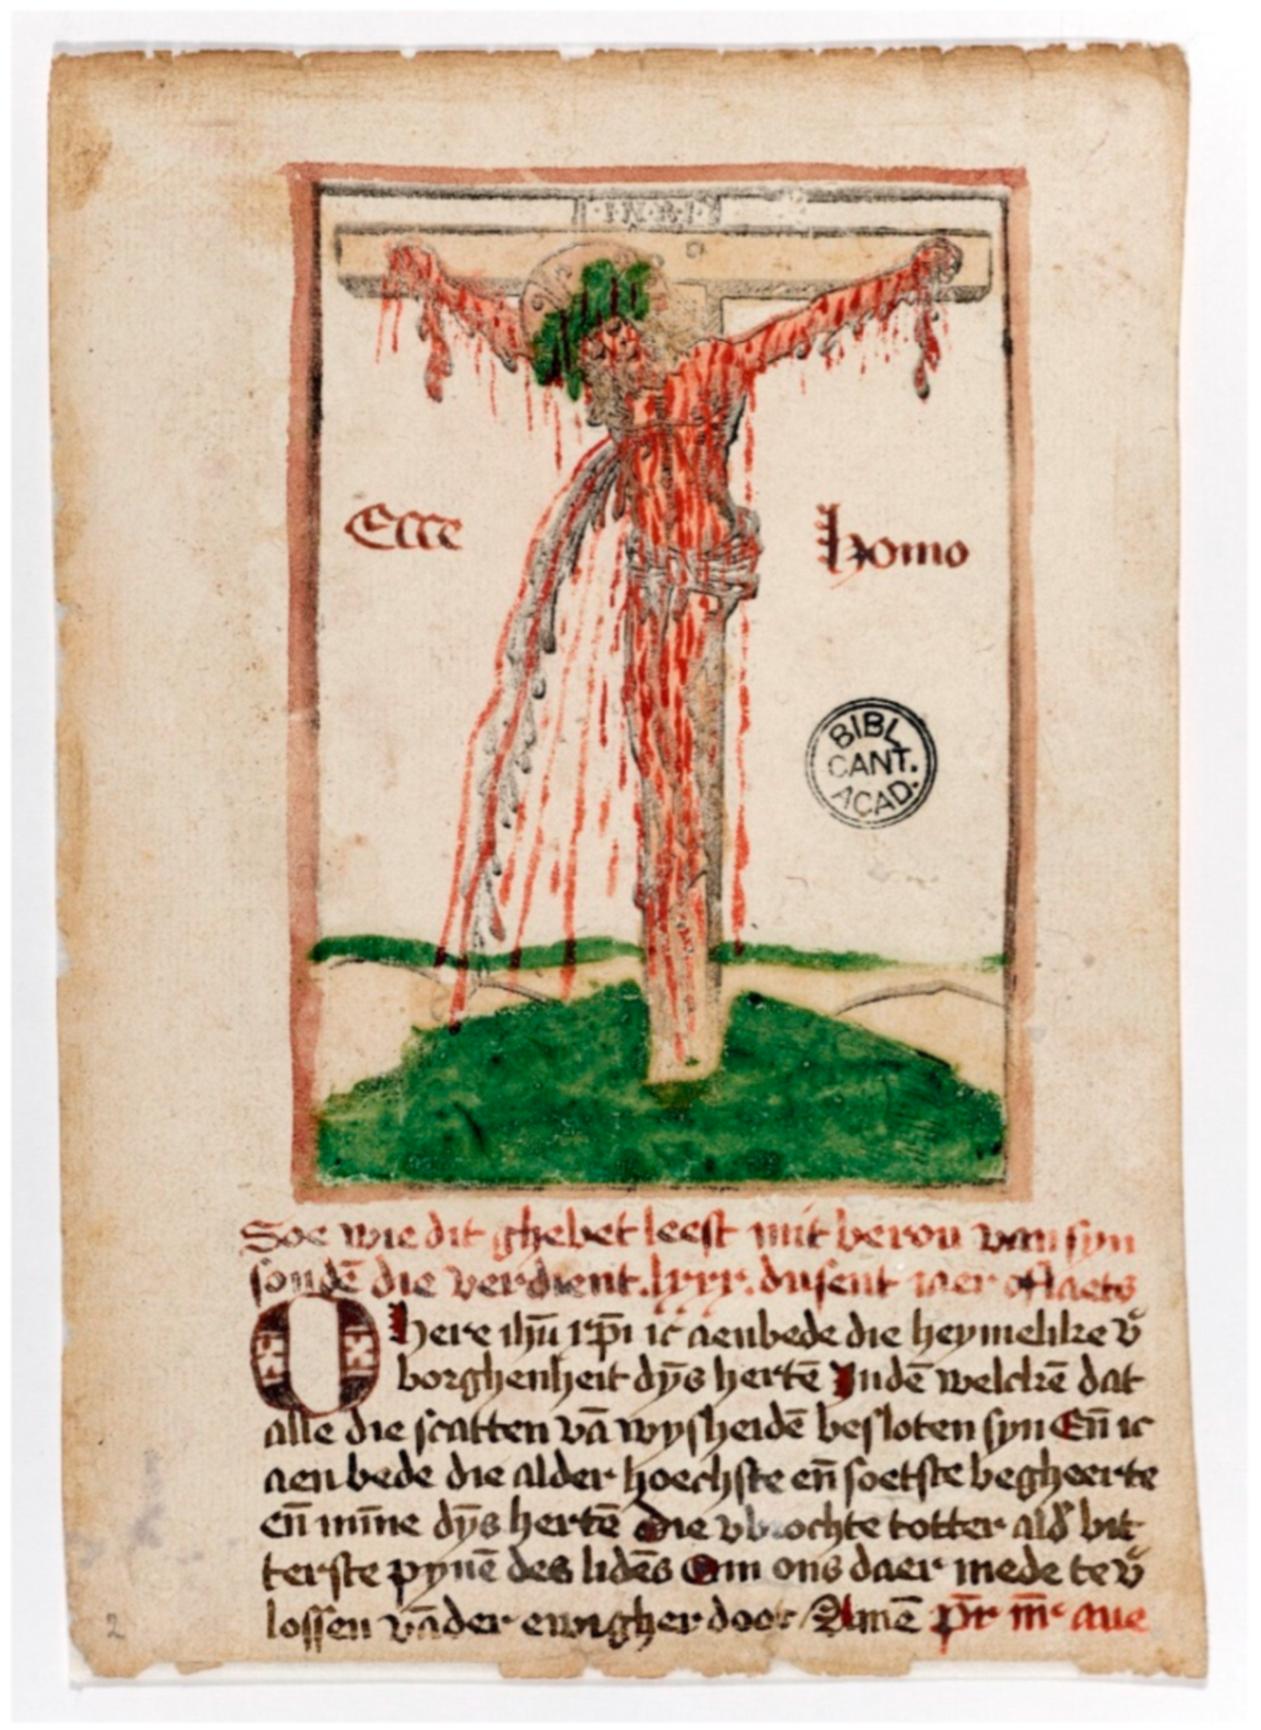 ·I·N·R·I·
Ecce homo
BIBL.
CANT.
ACAD.
Soe wie dit ghebet leest mit berou van syn
sondē die verdient .lxxx. dusent iaer oflaets
O here ihū xp̄i ic aenbede die heymelike v̄
borghenheit dȳs hertē Indē welckē dat
alle die scatten vā wysheidē besloten syn Eñ ic
aen bede die alder hoechste eñ soetste begheerte
eñ mīne dȳs hertē Die vbrochte totter ald' bit
terste pynē des lidēs Om ons daer mede te v̄
lossen vāder ewigher doot / Amē pr̄ mr̄ aue
2